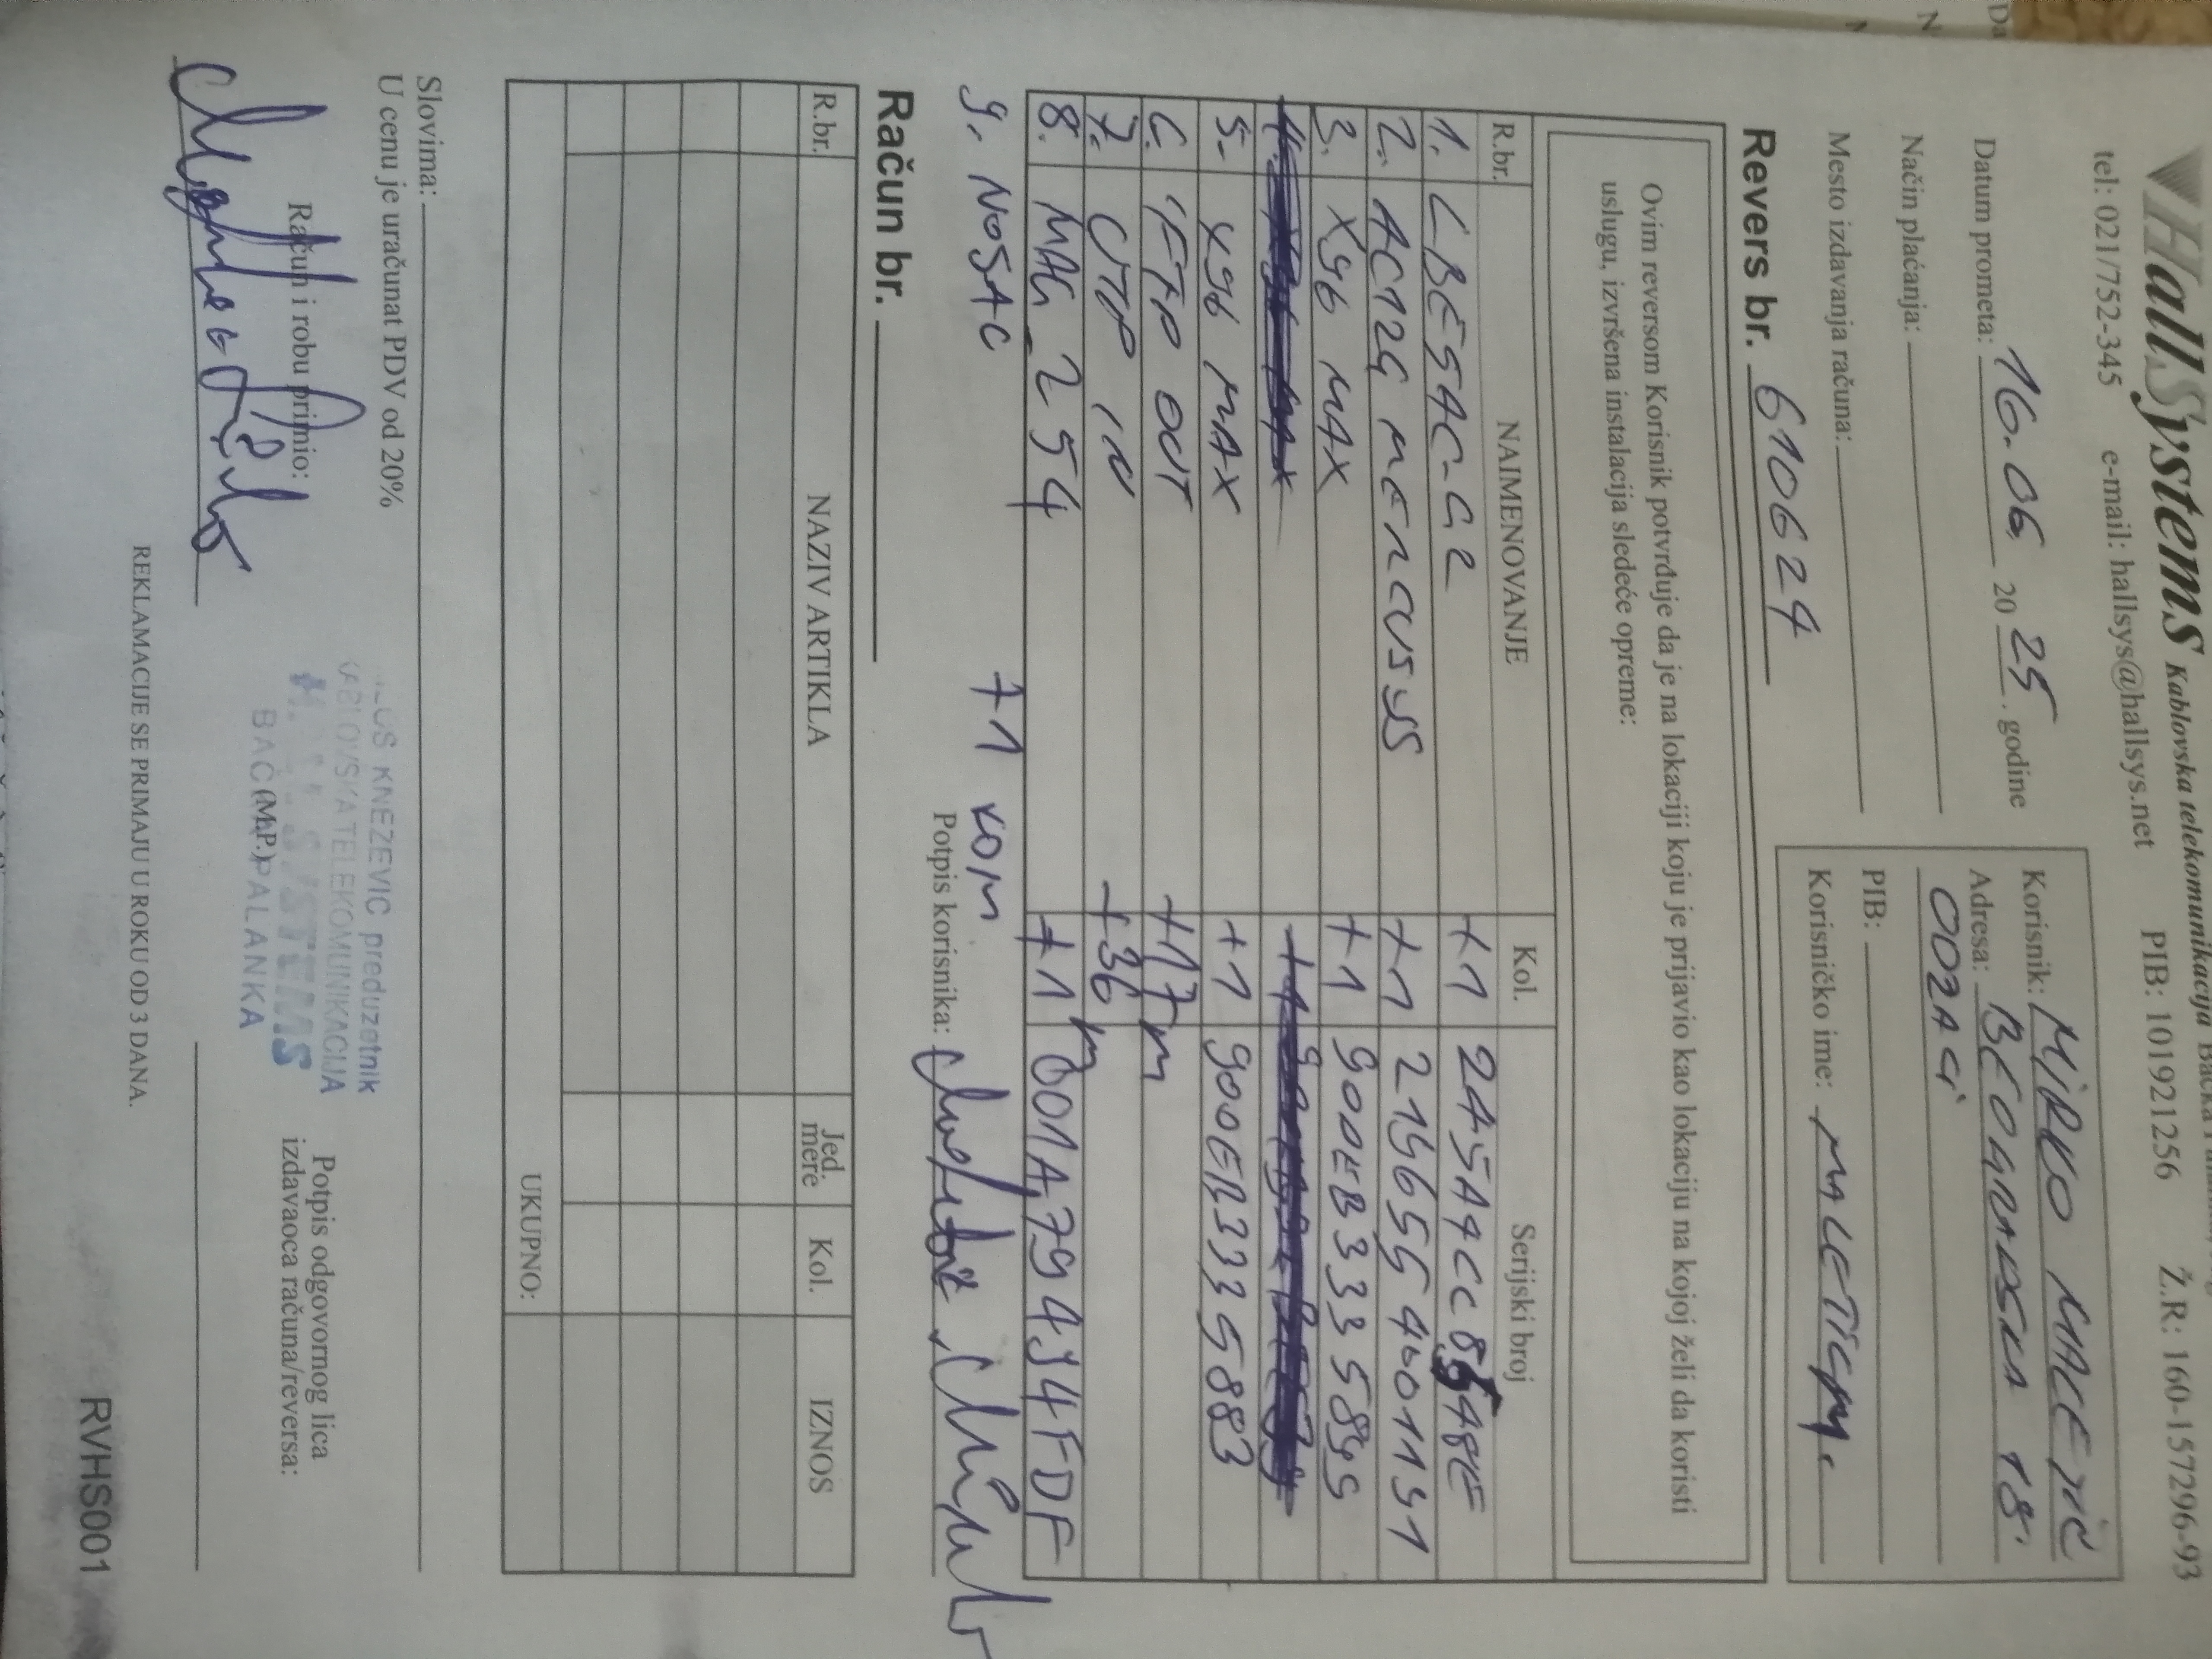 HallSystems Kablovska telekomunikacija Bačka
tel: 021/752-345 e-mail: hallsys@hallsys.net PIB: 101921256 Ž.R: 160-157296-93
Datum prometa: 16.06. 2025. godine
Način plaćanja:
Mesto izdavanja računa:
Korisnik: MIRKO MALETIĆ
Adresa: BEOGRADSKA 18.
ODŽACI
PIB:
Korisničko ime: MALETICM.
Revers br. 610624
Ovim reversom Korisnik potvrđuje da je na lokaciji koju je prijavio kao lokaciju na kojoj želi da koristi
uslugu, izvršena instalacija sledeće opreme:
R.br. NAIMENOVANJE Kol. Serijski broj
1. LBE5AC-G2 +1
2. AC12G MERCUSYS +1
3. X96 MAX +1
5. X96 MAX +1 900EB3335883
6. FTP OUT +17m
7. UTP IN +36m
8. MAG 254 +1 001A79494FDF
9. NOSAC +1 KOM
Potpis korisnika:
Račun br.
R.br. NAZIV ARTIKLA Jed. mere Kol. IZNOS
UKUPNO:
Slovima:
U cenu je uračunat PDV od 20%
Račun i robu primio:
KNEŽEVIĆ preduzetnik
KABLOVSKA TELEKOMUNIKACIJA
SYSTEMS
BAČKA PALANKA
(M.P.)
Potpis odgovornog lica
izdavaoca računa/reversa:
REKLAMACIJE SE PRIMAJU U ROKU OD 3 DANA.
RVHS001